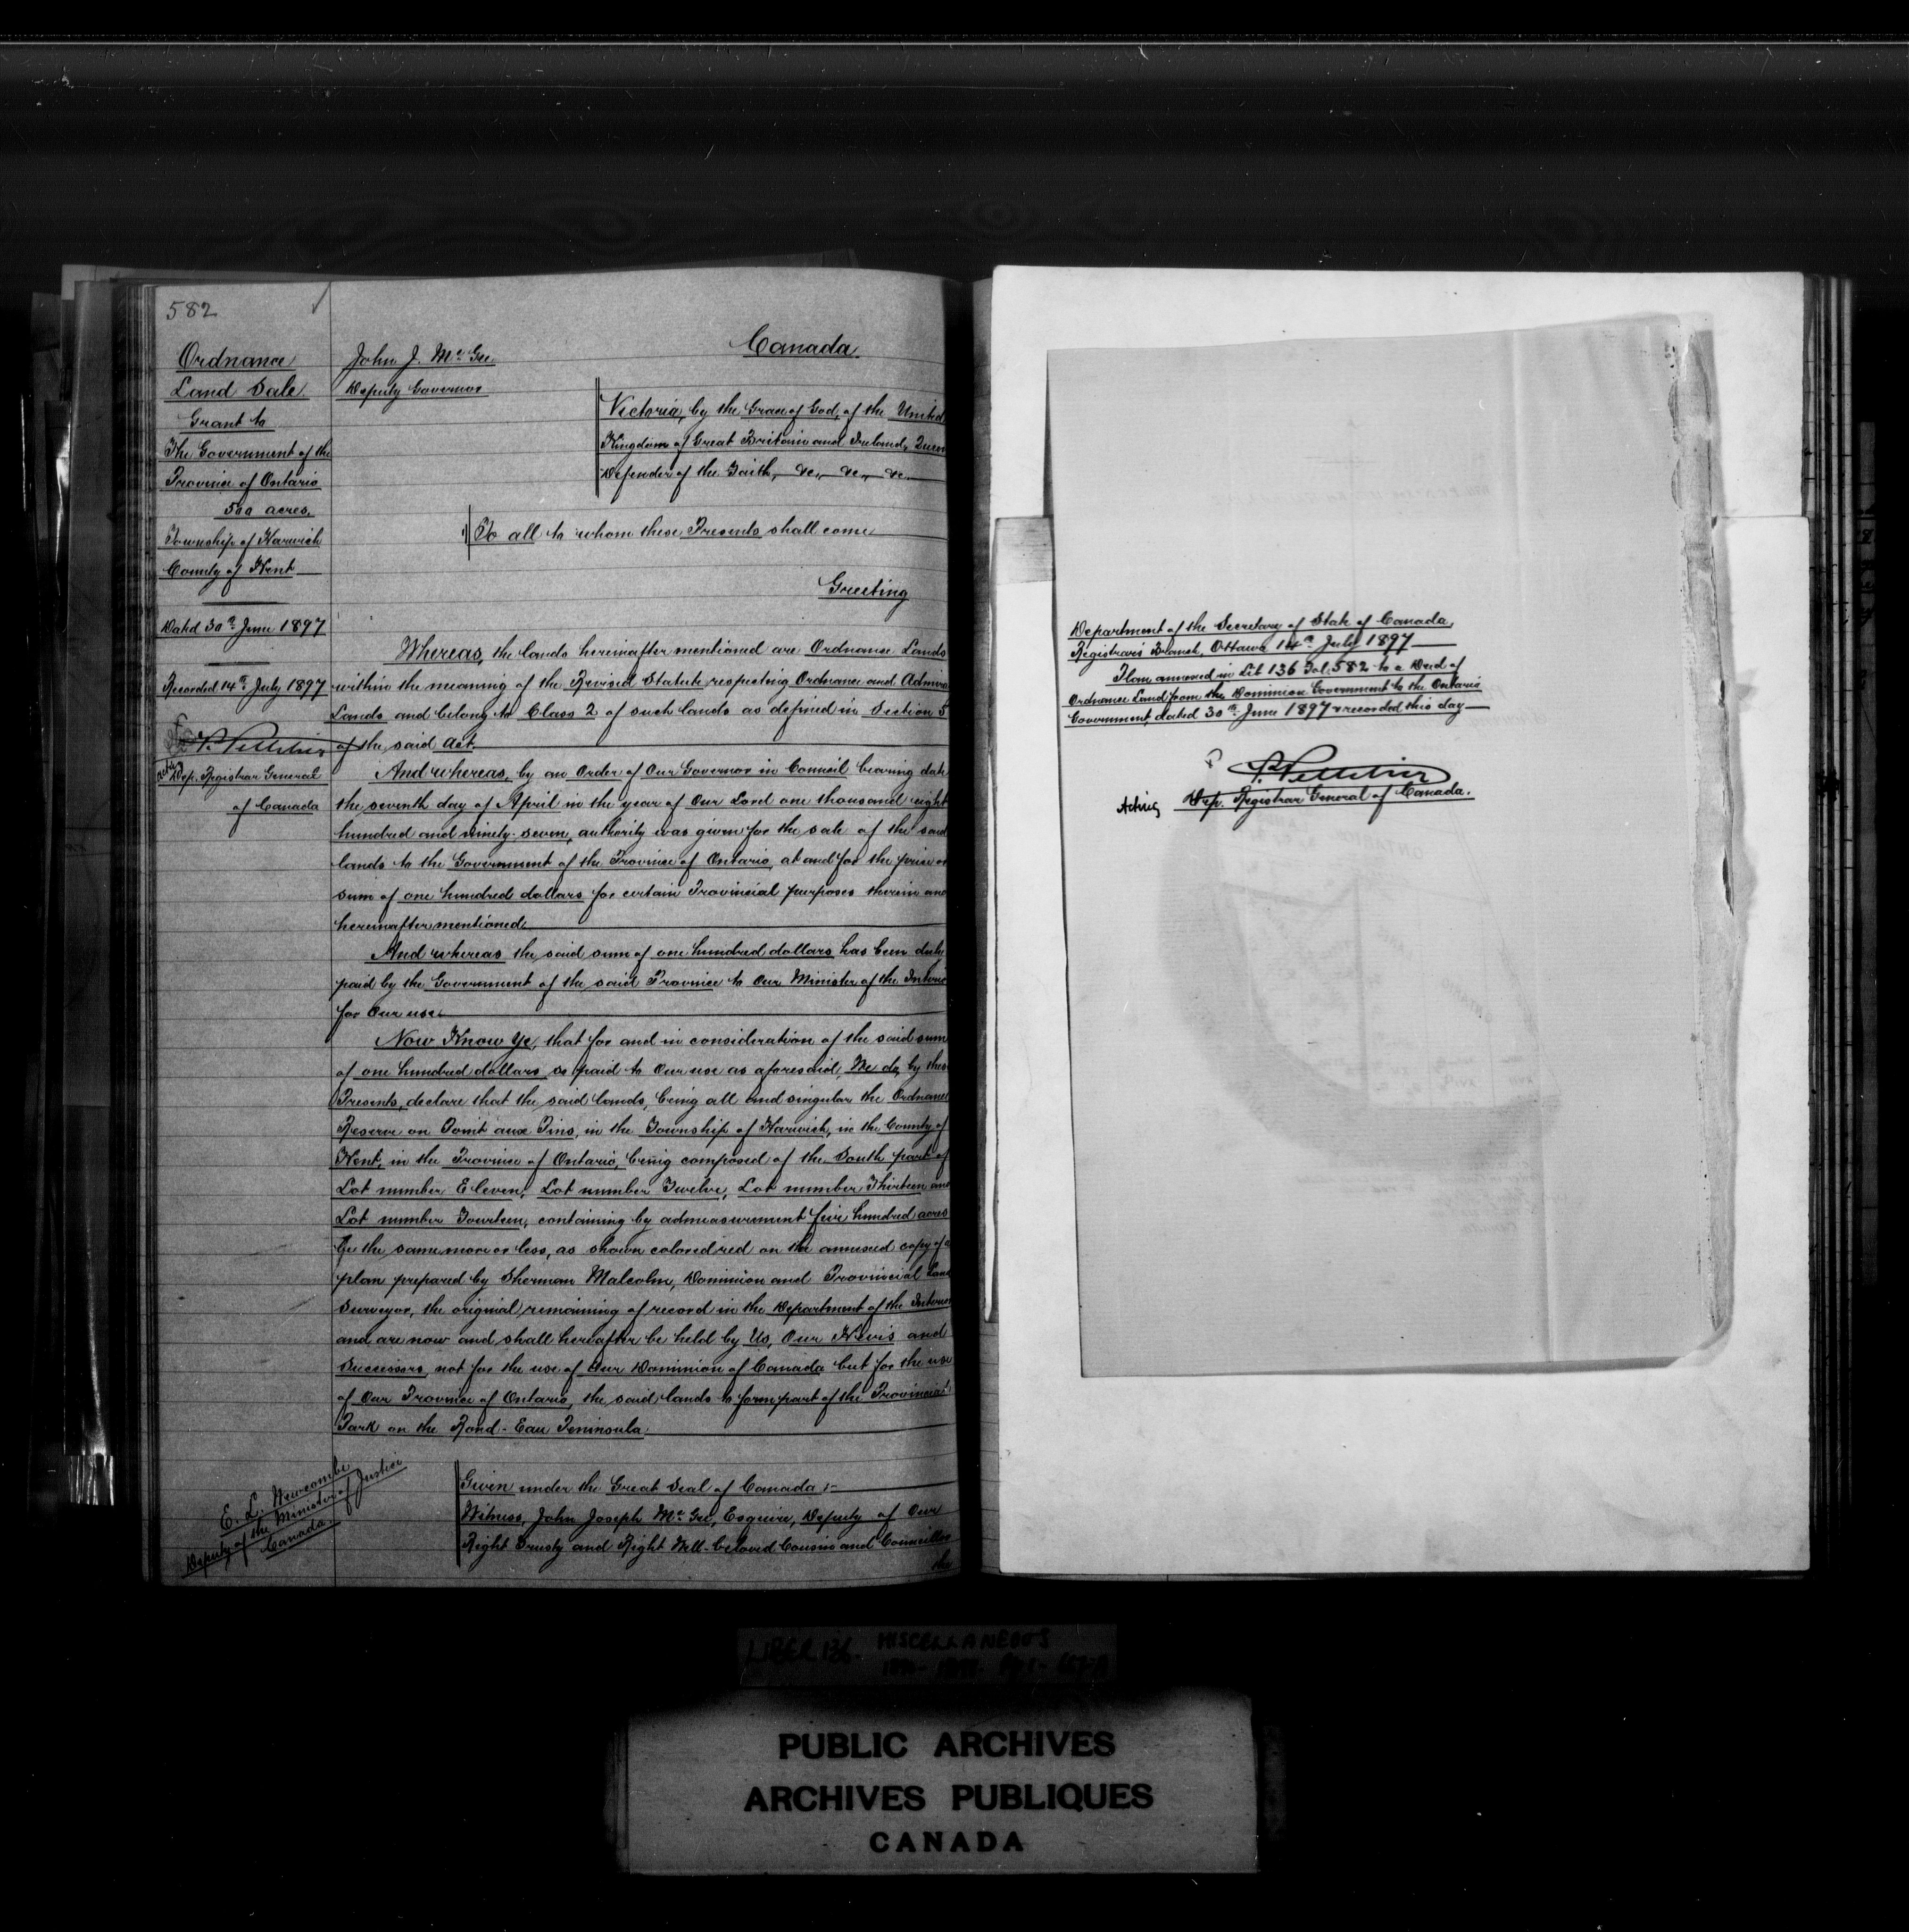 582
Ordnance
Land Sale
Grant to
The Government of the
Province of Ontario
500 acres.
Township of Harwich
County of Kent
Dated 30th June 1897
Recorded 14th July 1897
P. Pelletier
Actg Dep. Registrar General
of Canada
John J. McGee
Deputy Governor
Canada.
Victoria, by the Grace of God, of the United
Kingdom of Great Britain and Ireland, Queen
Defender of the Faith, &c., &c., &c.
To all to whom these Presents shall come
Greeting
Whereas, the lands hereinafter mentioned are Ordnance Lands
within the meaning of the Revised Statute respecting Ordnance and Admira
Lands and belong to Class 2 of such lands as defined in Section 5
of the said Act.
And whereas, by an Order of Our Governor in Council bearing date
the seventh day of April in the year of Our Lord one thousand eight
hundred and ninety-seven, authority was given for the sale of the said
lands to the Government of the Province of Ontario, at and for the price or
sum of one hundred dollars for certain Provincial purposes therein and
hereinafter mentioned.
And whereas the said sum of one hundred dollars has been duly
paid by the Government of the said Province to Our Minister of the Interior
for Our use.
Now Know Ye, that for and in consideration of the said sum
of one hundred dollars so paid to Our use as aforesaid, We do, by these
Presents, declare that the said lands, being all and singular the Ordnance
Reserve on Point aux Pins, in the Township of Harwich, in the County of
Kent, in the Province of Ontario, being composed of the South part of
Lot number Eleven, Lot number Twelve, Lot number Thirteen and
Lot number Fourteen, containing by admeasurement five hundred acres
be the same more or less, as shown colored red on the annexed copy of a
plan prepared by Sherman Malcolm, Dominion and Provincial Land
Surveyor, the original remaining of record in the Department of the Interior
and are now and shall hereafter be held by Us, Our Heirs and
Successors, not for the use of Our Dominion of Canada but for the use
of Our Province of Ontario, the said lands to form part of the Provincial
Park on the Rond-Eau Peninsula.
E. L. Newcombe
Deputy of the Minister of Justice
Canada.
Given under the Great Seal of Canada :-
Witness, John Joseph McGee, Esquire, Deputy of Our
Right Trusty and Right Well-beloved Cousin and Councillor
the
Department of the Secretary of State of Canada,
Registrar's Branch, Ottawa 14th July 1897
Plan annexed in Lib 136 Fol. 582 to a Deed of
Ordnance Land from the Dominion Government to the Ontario
Government, dated 30th June 1897 & recorded this day
P. Pelletier
Acting Dep. Registrar General of Canada.
LIBER 136. MISCELLANEOUS
PUBLIC ARCHIVES
ARCHIVES PUBLIQUES
CANADA